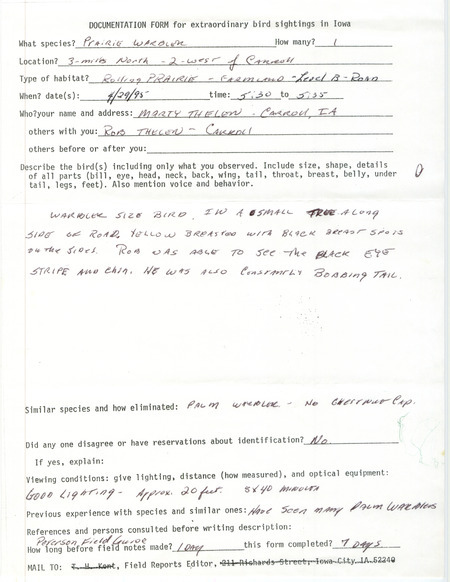 DOCUMENTATION FORM for extraordinary bird sightings in Iowa
What species? PRAIRIE WARBLER How many? 1
Location? 3-miles North - 2-west of CARROLL
Type of habitat? Rolling PRAIRIE - FARMLAND - Level B - ROAD
When? date(s): 4/29/95 time: 5:30 to 5:35
Who?your name and address: MARTY THELEN . CARROLL, IA
others with you: ROB THELEN - CARROLL
others before or after you:
Describe the bird(s) including only what you observed. Include size, shape, details
of all parts (bill, eye, head, neck, back, wing, tail, throat, breast, belly, under
tail, legs, feet). Also mention voice and behavior.
WARBLER SIZE BIRD. IN A SMALL TREE ALONG
SIDE OF ROAD, YELLOW BREASTED WITH BLACK BREAST SPOTS
ON THE SIDES. ROB WAS ABLE TO SEE THE BLACK EYE
STRIPE AND CHIN. HE WAS ALSO CONSTANTLY BOBBING TAIL.
Similar species and how eliminated: PALM WARBLER - NO CHESTNUT CAP.
Did any one disagree or have reservations about identification? No
If yes, explain:
Viewing conditions: give lighting, distance (how measured), and optical equipment:
GOOD LIGHTING - Approx. 20 feet. 8x40 MINOLTA
Previous experience with species and similar ones: HAVE SEEN MANY PALM WARBLERS
References and persons consulted before writing description:
Peterson Field Guide
How long before field notes made? 1 DAY this form completed? 7 DAYS
MAIL TO: T. H. Kent, Field Reports Editor, 211 Richards Street, Iowa City, IA 52240